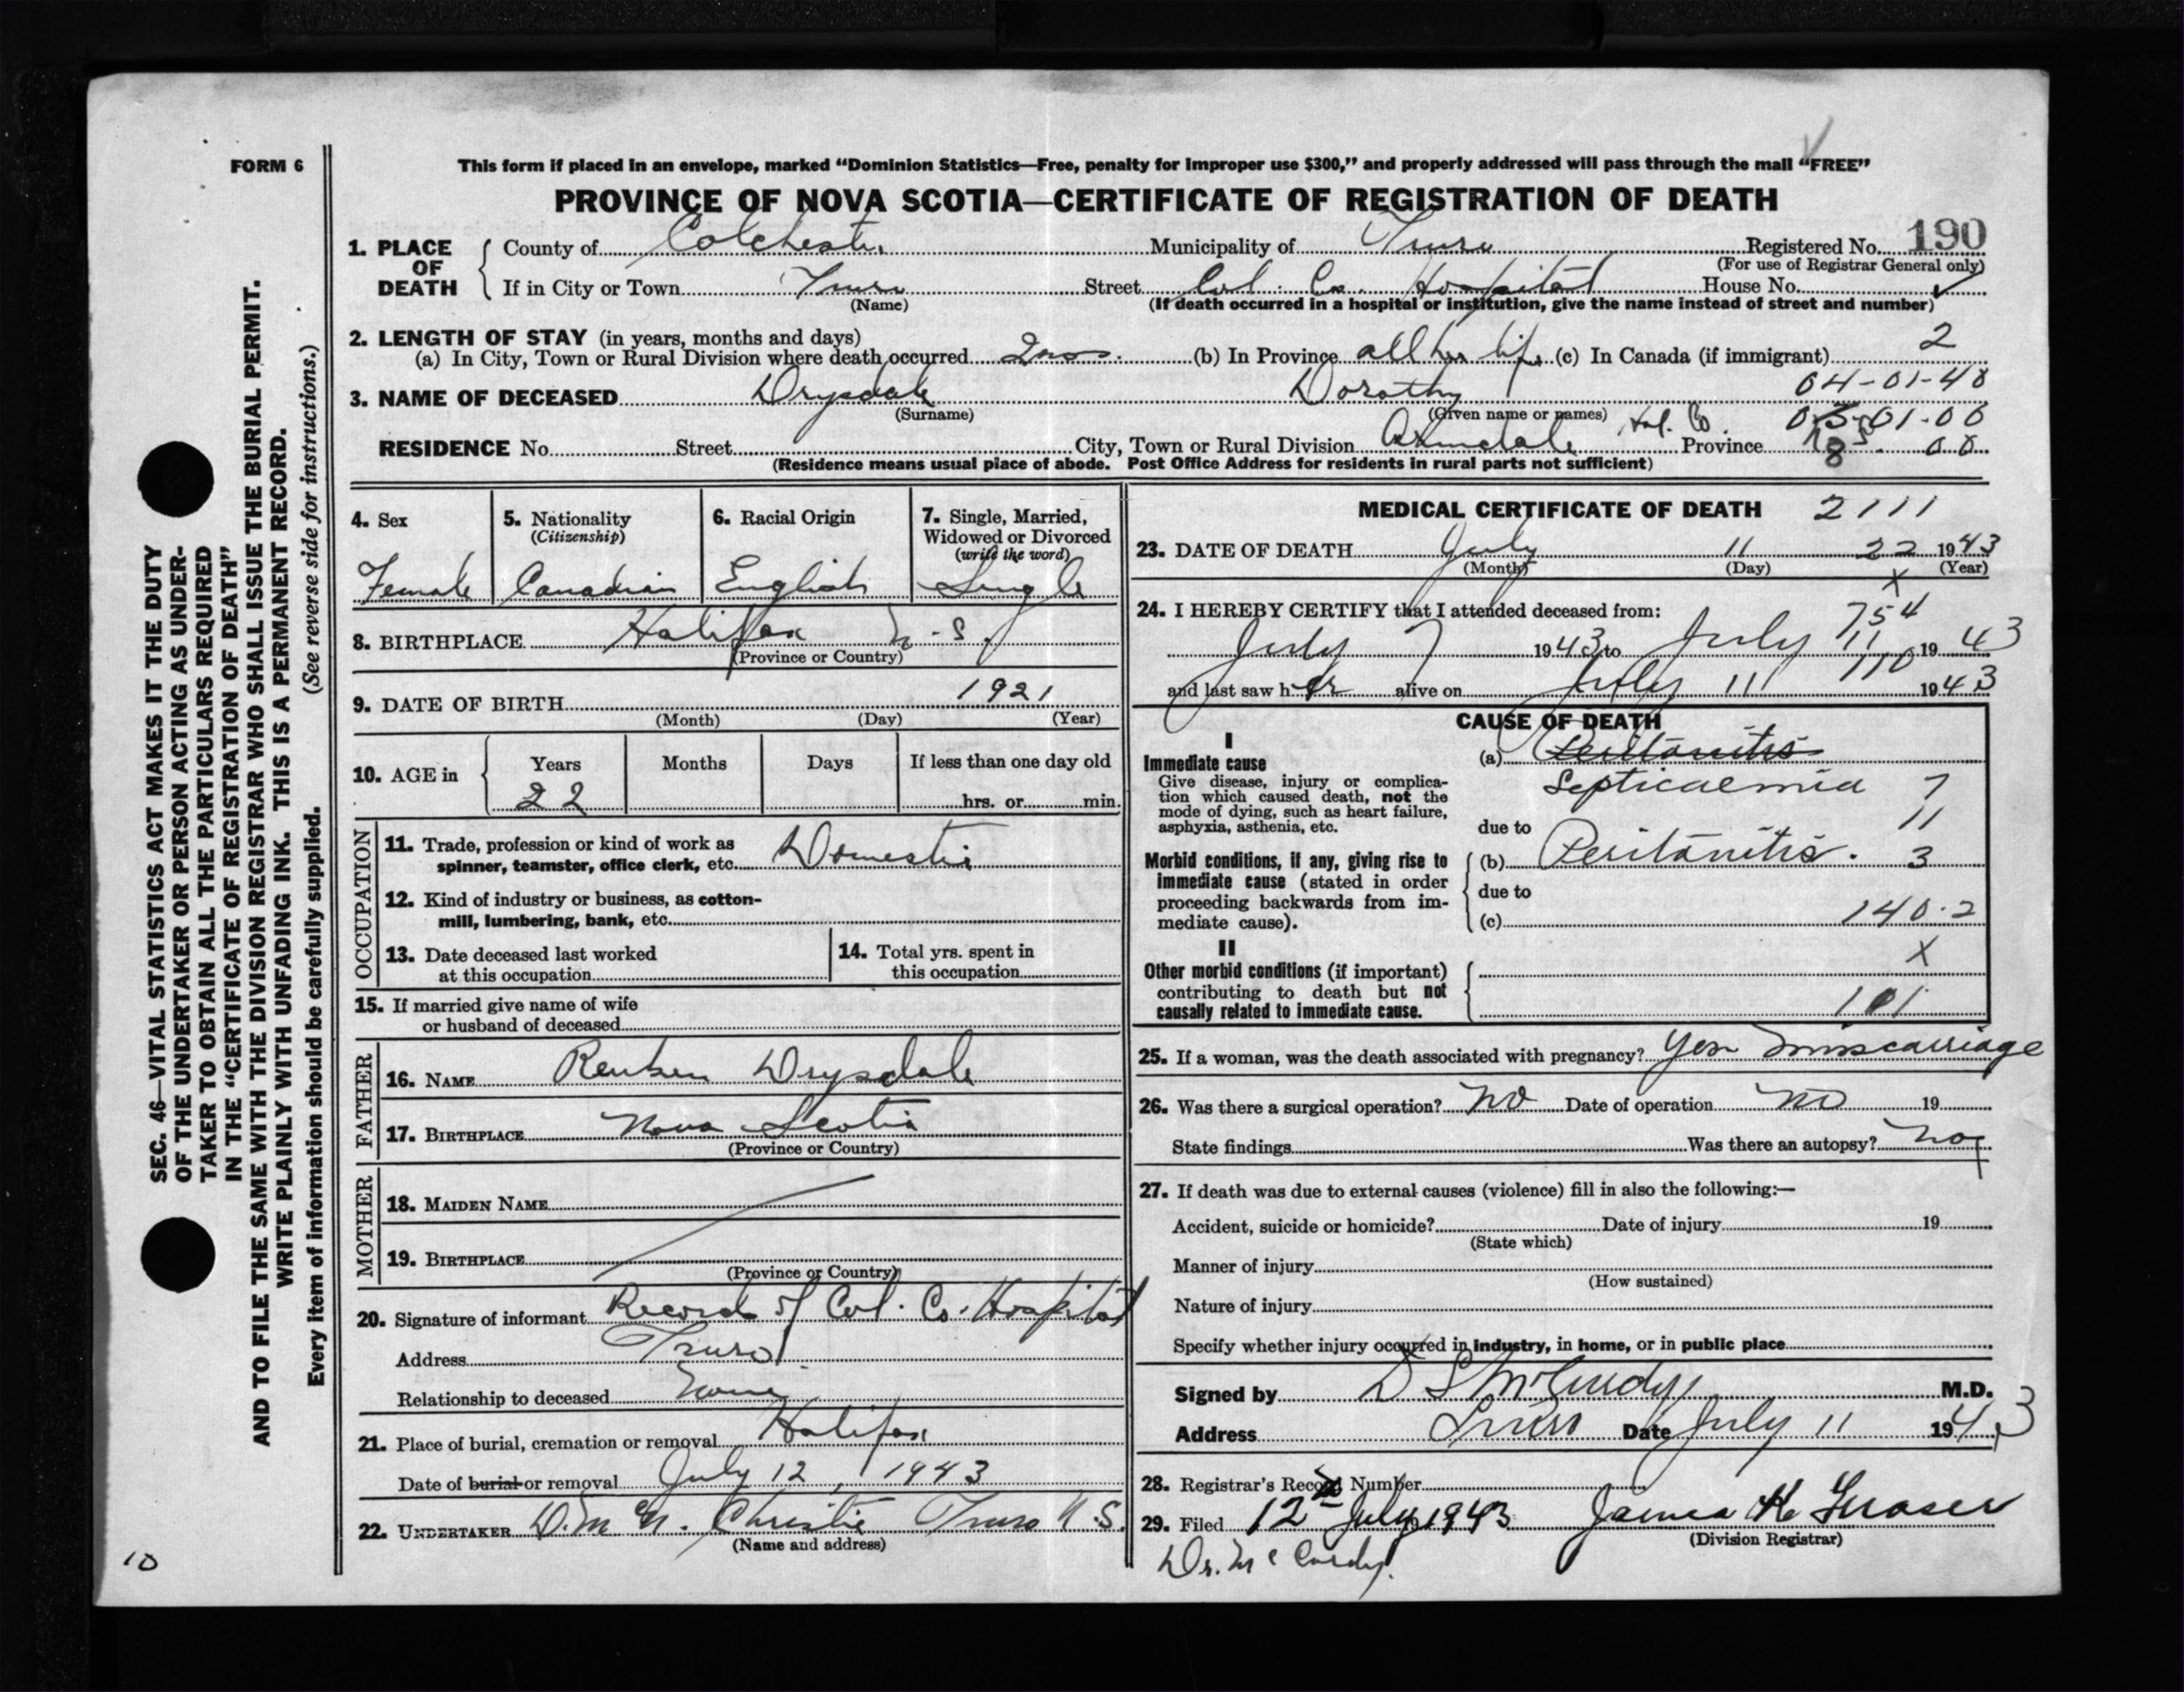 FORM 6
This form if placed in an envelope, marked "Dominion Statistics—Free, penalty for improper use $300," and properly addressed will pass through the mail "FREE"
PROVINCE OF NOVA SCOTIA—CERTIFICATE OF REGISTRATION OF DEATH
190
1. PLACE OF DEATH County of Colchester Municipality of Truro Registered No.
(For use of Registrar General only)
If in City or Town Truro Street Col. Co. Hospital House No.
(Name) (If death occurred in a hospital or institution, give the name instead of street and number)
2. LENGTH OF STAY (in years, months and days)
(a) In City, Town or Rural Division where death occurred 2 mos. (b) In Province all her life (c) In Canada (if immigrant) 2
04-01-48
3. NAME OF DECEASED Drysdale Dorothy
(Surname) (Given name or names)
Hal. Co.
RESIDENCE No. Street City, Town or Rural Division Armdale Province
(Residence means usual place of abode. Post Office Address for residents in rural parts not sufficient)
4. Sex 5. Nationality (Citizenship) 6. Racial Origin 7. Single, Married, Widowed or Divorced (write the word)
Female Canadian English Single
8. BIRTHPLACE Halifax N.S.
(Province or Country)
9. DATE OF BIRTH 1921
(Month) (Day) (Year)
10. AGE in Years Months Days If less than one day old
22 hrs. or min.
OCCUPATION
11. Trade, profession or kind of work as spinner, teamster, office clerk, etc. Domestic
12. Kind of industry or business, as cotton-mill, lumbering, bank, etc.
13. Date deceased last worked at this occupation
14. Total yrs. spent in this occupation
15. If married give name of wife or husband of deceased
FATHER
16. NAME Reuben Drysdale
17. BIRTHPLACE Nova Scotia
(Province or Country)
MOTHER
18. MAIDEN NAME
19. BIRTHPLACE
(Province or Country)
20. Signature of informant Records of Col. Co. Hospital
Address Truro
Relationship to deceased None
21. Place of burial, cremation or removal Halifax
Date of burial or removal July 12, 1943
22. UNDERTAKER Christie Truro N.S.
(Name and address)
MEDICAL CERTIFICATE OF DEATH 2111
23. DATE OF DEATH July 11 22 1943
(Month) (Day) (Year)
X
24. I HEREBY CERTIFY that I attended deceased from: 754
July 7 1943 to July 11 1943
110
and last saw her alive on July 11 1943
CAUSE OF DEATH
I
Immediate cause (a) Peritonitis
Give disease, injury or complication which caused death, not the mode of dying, such as heart failure, asphyxia, asthenia, etc.
Septicaemia 7
11
due to
Morbid conditions, if any, giving rise to immediate cause (stated in order proceeding backwards from immediate cause).
(b) Peritonitis. 3
due to
(c) 140.2
II
X
Other morbid conditions (if important) contributing to death but not causally related to immediate cause.
101
25. If a woman, was the death associated with pregnancy? Yes miscarriage
26. Was there a surgical operation? No Date of operation no 19
State findings Was there an autopsy? No
27. If death was due to external causes (violence) fill in also the following:—
Accident, suicide or homicide? Date of injury 19
(State which)
Manner of injury
(How sustained)
Nature of injury
Specify whether injury occurred in industry, in home, or in public place
Signed by D S McCurdy M.D.
Address Truro Date July 11 1943
28. Registrar's Record Number
29. Filed 12th July 1943 James K. Fraser
(Division Registrar)
Dr. McCurdy.
SEC. 46—VITAL STATISTICS ACT MAKES IT THE DUTY
OF THE UNDERTAKER OR PERSON ACTING AS UNDER-
TAKER TO OBTAIN ALL THE PARTICULARS REQUIRED
IN THE "CERTIFICATE OF REGISTRATION OF DEATH"
AND TO FILE THE SAME WITH THE DIVISION REGISTRAR WHO SHALL ISSUE THE BURIAL PERMIT.
WRITE PLAINLY WITH UNFADING INK. THIS IS A PERMANENT RECORD.
Every item of information should be carefully supplied. (See reverse side for instructions.)
10